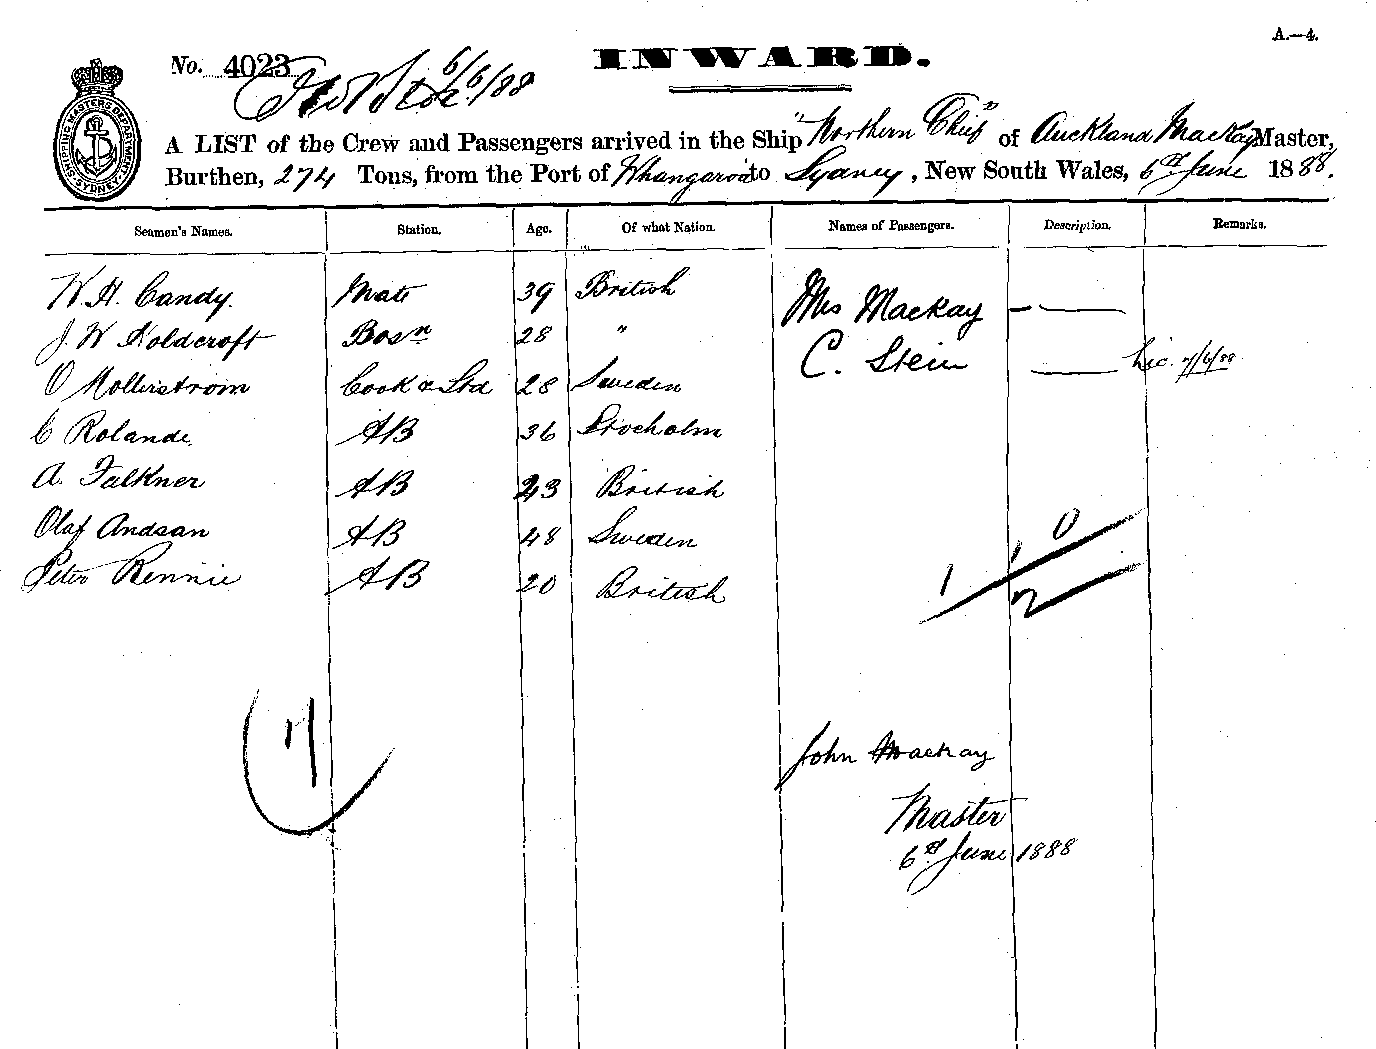 A.—4.
No. 4023
6/6/88
INWARD.
SHIPPING MASTERS DEPARTMENT SYDNEY
A LIST of the Crew and Passengers arrived in the Ship "Northern Chief" of Auckland Mackay Master,
Burthen, 274 Tons, from the Port of Whangaroa to Sydney, New South Wales, 6th June 1888.
Seamen's Names. Station. Age. Of what Nation. Names of Passengers. Description. Remarks.
W. H. Candy. Mate 39 British Mrs Mackay — —
J. W Holdcroft Bosn 28 " C. Stein — Lic. 7/6/88
O Mollerstrom Cook & Std 28 Sweden
C Rolande. AB 36 Stocholm
A. Falkner AB 23 British
Olaf Andsan AB 48 Sweden
Peter Rennie AB 20 British
1 1 0
2
John Mackay
Master
6th June 1888